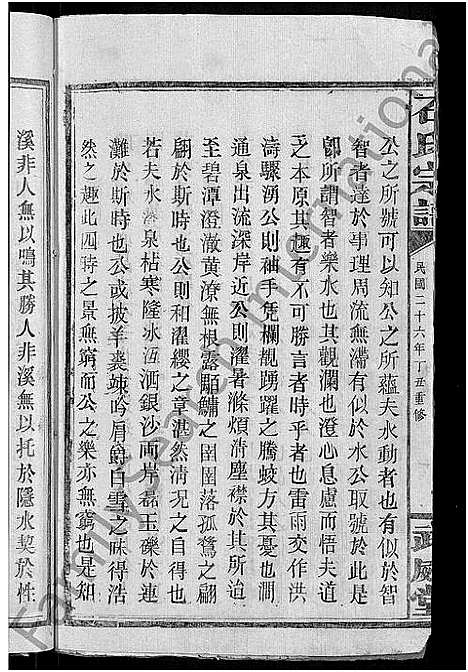 石氏宗譜
民國二十六年丁丑重修
武威堂
公之所號可以知公之所蘊夫水動者也有似於智
智者達於事理周流無滯有似於水公取號於此
卽所謂智者樂水也其觀瀾也澄心息慮而悟夫道
之本原其趣有不可勝言者時乎雷雨交作奔
濤驟湧公則袖手凭欄覩踴躍之騰蛟方其憂也澗
通泉出流深岸近公則濯暑滌煩清塵襟於其所迨
至碧潭澄澈黄潦無根露顯鱐之圉圉落孤鶩之翩
翩於斯時也公則和濯纓之章湛然清况之自得也
若夫水落泉枯寒隆冰冱洒銀沙兩岸磊玉礫於連
灘於斯時也公或披羊裘竦吟肩爵白雪之味得浩
然之趣此四時之景無窮而公之樂亦無窮也是知
溪非人無以鳴其勝人非溪無以托於隱水契於性
FamilySearch International